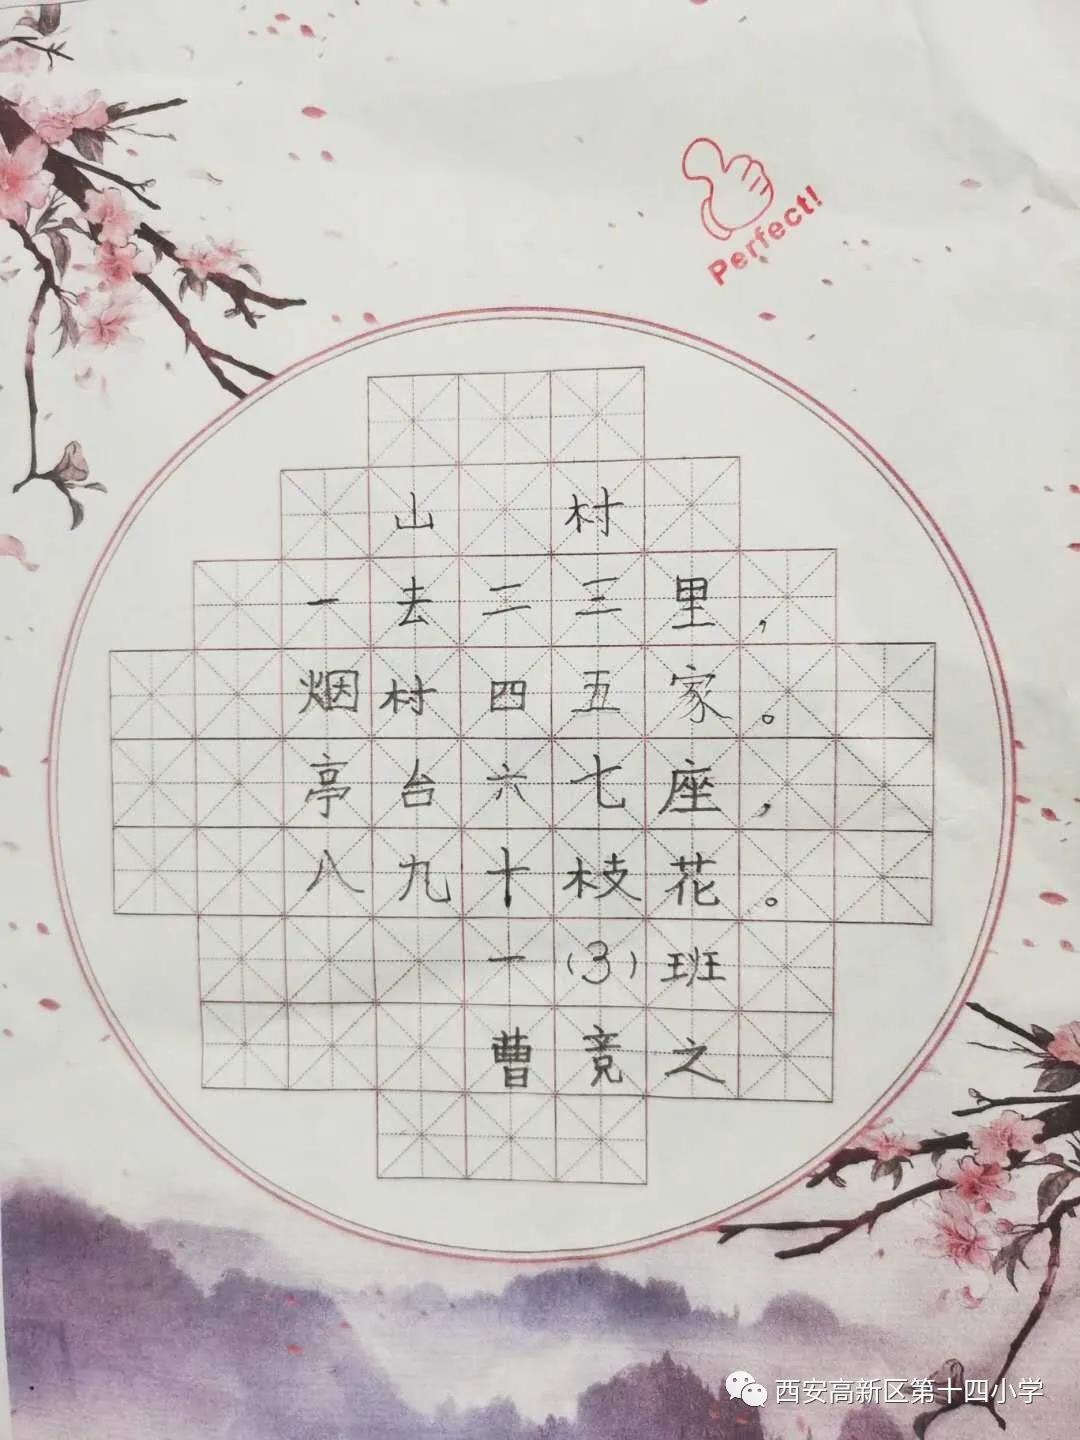 Perfect!
山 村
一去二三里，
烟村四五家。
亭台六七座，
八九十枝花。
一（3）班
曹竞之
西安高新区第十四小学